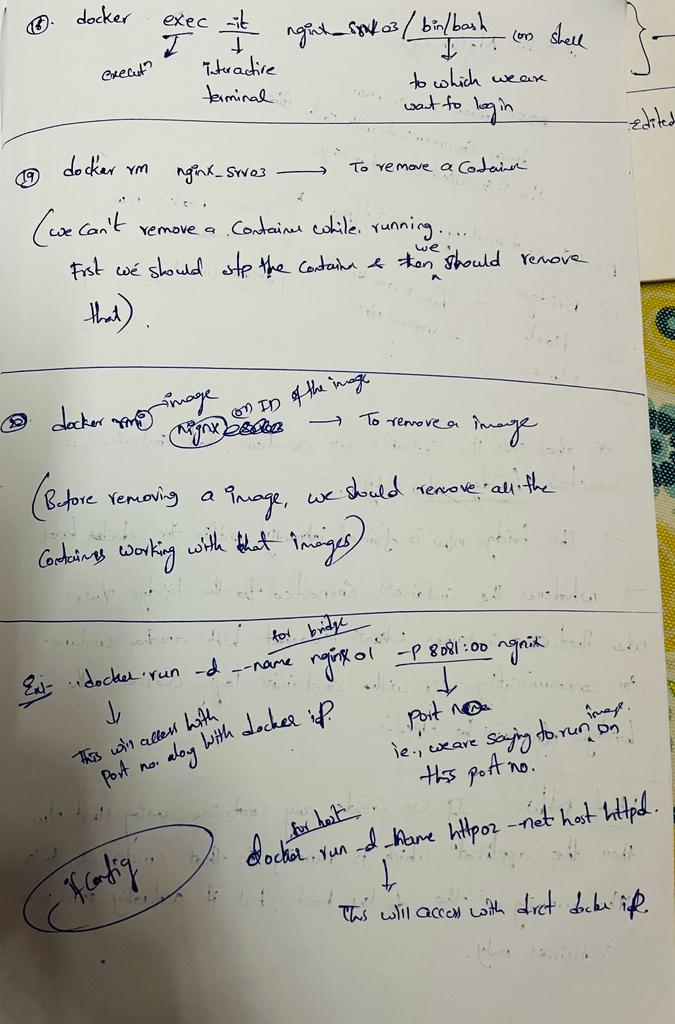 (18). docker exec -it nginx_srv03 /bin/bash (or) shell
executn interactive terminal to which we are want to login
Edited
(19) docker rm nginx_srv03 → To remove a Container
(we can't remove a Container while running....
First we should stp the container & then we should remove
that).
image (or) ID of the image
(20) docker rmi nignx → To remove a image
(Before removing a image, we should remove all the
Containers working with that images)
for bridge
Ex:- docker run -d --name nginx01 -P 8081:00 ngnix
This will access with
port no. along with docker iP.
port no
ie., we are saying to run image on
this port no.
for host
docker run -d -Name http02 -net host httpd.
ifconfig
This will access with dirct docker iP